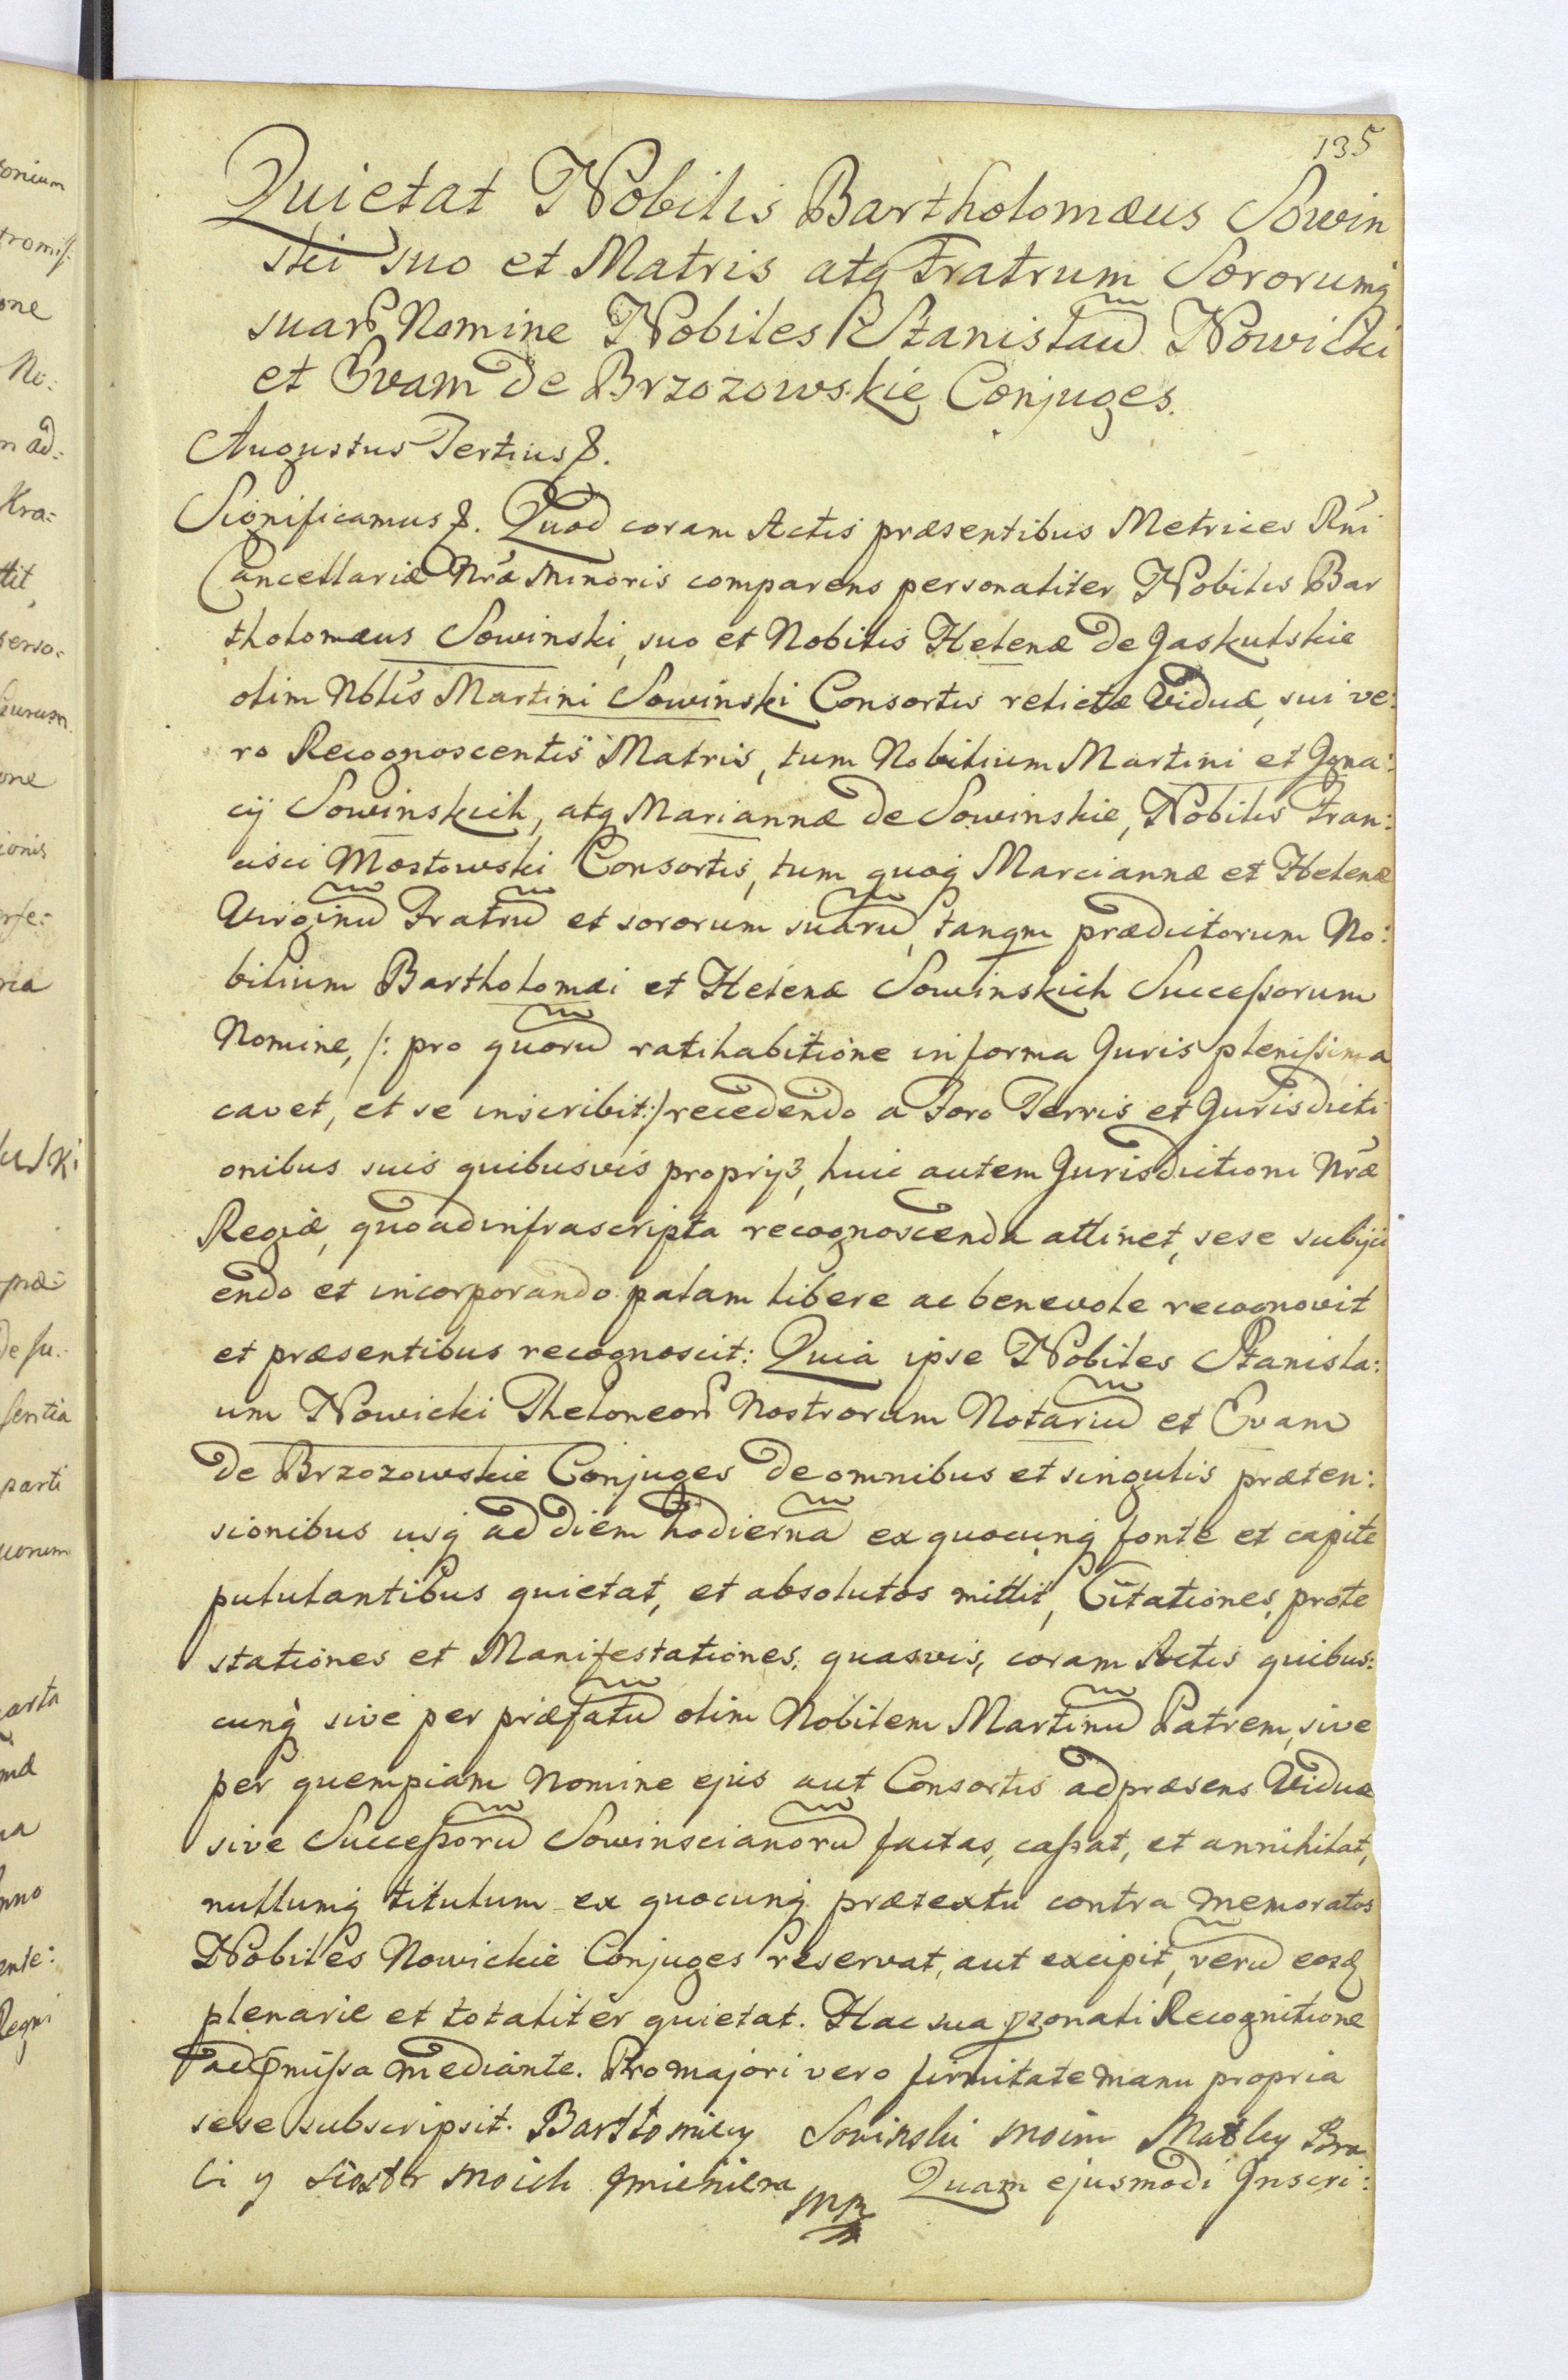 135
Quietat Nobilis Bartholomæus Sowin
ski suo et Matris atq Fratrum Sororumq
suarū Nomine Nobiles Stanisław̃ Nowicki
et Evam de Brzozowskie Conjuges.
Augustus Tertius &.
Significamus &. Quod coram Actis præsentibus Metrices Rńi
Cancellariæ Nr̃æ Minoris comparens personaliter Nobilis Bar
tholomæus Sowinski, suo et Nobilis Helenæ de Jaskulskie
olim Nobĺis Martini Sowinski Consortis relictæ Viduæ, sui ve:
ro Recognoscentis Matris, tum Nobilium Martini et Igna:
cij Sowinskich, atq Mariannæ de Sowinskie, Nobilis Fran:
cisci Mostowski Consortis, tum quoq Marciannæ et Helenæ
Virginũ Fratrũ et sororum suarũ, tanqm prædictorum No:
bilium Bartholomæi et Helenæ Sowinskich Successorum
Nomine, /: pro quorũ ratihabitione in forma Juris plenissima
cavet, et se inscribit :/ recedendo a Foro Terris et Jurisdicti
onibus suis quibusvis proprijs, huic autem Jurisdictioni Nr̃æ
Regiæ, quoad infrascripta recognoscenda attinet, sese subijci
endo et incorporando palam libere ac benevole recognovit
et præsentibus recognoscit: Quia ipse Nobiles Stanisla:
um Nowicki Theloneorũ Nostrorum Notariũ et Evam
de Brzozowskie Conjuges de omnibus et singulis præten:
sionibus usq ad diem hodiernã ex quocunq fonte et capite
pululantibus quietat, et absolutos mittit, Citationes, prote
stationes et Manifestationes, quasvis, coram Actis quibus:
cunq sive per præfatũ olim Nobilem Martinũ Patrem, sive
per quempiam Nomine ejus aut Consortis ad præsens Viduæ
sive Successorũ Sowinscianorũ factas, cassat, et annihilat,
nullumq titulum ex quocunq prætextu contra memoratos
Nobiles Nowickie Conjuges reservat, aut excipit, verũ eosd
plenarie et totaliter quietat. Hac sua psonali Recognitione
ad pmissa mediante. Pro majori vero firmitate manu propria
sese subscripsit. Bartłomiey Sowinski moim Matky Bra
ci y Siostr moich Imieniem MP Quam ejusmodi Inscri: